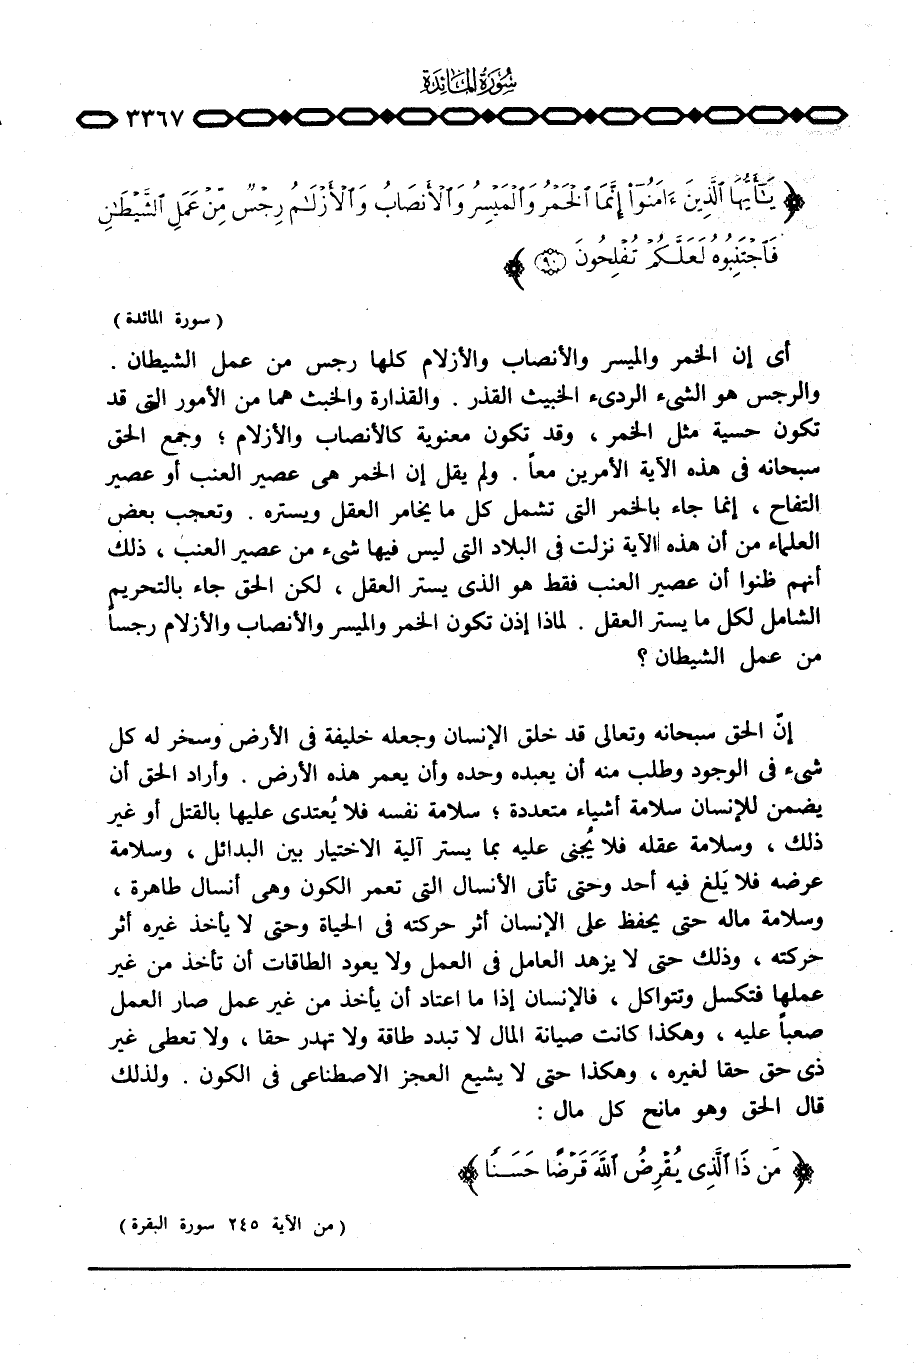 سورة المائدة
٣٣٦٧
﴿ يَٰٓأَيُّهَا ٱلَّذِينَ ءَامَنُوٓا۟ إِنَّمَا ٱلْخَمْرُ وَٱلْمَيْسِرُ وَٱلْأَنصَابُ وَٱلْأَزْلَٰمُ رِجْسٌ مِّنْ عَمَلِ ٱلشَّيْطَٰنِ
فَٱجْتَنِبُوهُ لَعَلَّكُمْ تُفْلِحُونَ ٩٠ ﴾
( سورة المائدة )
أى إن الخمر والميسر والأنصاب والأزلام كلها رجس من عمل الشيطان .
والرجس هو الشىء الردىء الخبيث القذر . والقذارة والخبث هما من الأمور التى قد
تكون حسية مثل الخمر ، وقد تكون معنوية كالأنصاب والأزلام ؛ وجمع الحق
سبحانه فى هذه الآية الأمرين معاً . ولم يقل إن الخمر هى عصير العنب أو عصير
التفاح ، إنما جاء بالخمر التى تشمل كل ما يخامر العقل ويستره . وتعجب بعض
العلماء من أن هذه الآية نزلت فى البلاد التى ليس فيها شىء من عصير العنب ، ذلك
أنهم ظنوا أن عصير العنب فقط هو الذى يستر العقل ، لكن الحق جاء بالتحريم
الشامل لكل ما يستر العقل . لماذا إذن تكون الخمر والميسر والأنصاب والأزلام رجساً
من عمل الشيطان ؟
إنّ الحق سبحانه وتعالى قد خلق الإنسان وجعله خليفة فى الأرض وسخر له كل
شىء فى الوجود وطلب منه أن يعبده وحده وأن يعمر هذه الأرض . وأراد الحق أن
يضمن للإنسان سلامة أشياء متعددة ؛ سلامة نفسه فلا يُعتدى عليها بالقتل أو غير
ذلك ، وسلامة عقله فلا يُجنى عليه بما يستر آلية الاختيار بين البدائل ، وسلامة
عرضه فلا يَلغ فيه أحد وحتى تأتى الأنسال التى تعمر الكون وهى أنسال طاهرة ،
وسلامة ماله حتى يحفظ على الإنسان أثر حركته فى الحياة وحتى لا يأخذ غيره أثر
حركته ، وذلك حتى لا يزهد العامل فى العمل ولا يعود الطاقات أن تأخذ من غير
عملها فتكسل وتتواكل ، فالإنسان إذا ما اعتاد أن يأخذ من غير عمل صار العمل
صعباً عليه ، وهكذا كانت صيانة المال لا تبدد طاقة ولا تهدر حقا ، ولا تعطى غير
ذى حق حقا لغيره ، وهكذا حتى لا يشيع العجز الاصطناعى فى الكون . ولذلك
قال الحق وهو مانح كل مال :
﴿ مَن ذَا ٱلَّذِى يُقْرِضُ ٱللَّهَ قَرْضًا حَسَنًا ﴾
( من الآية ٢٤٥ سورة البقرة )